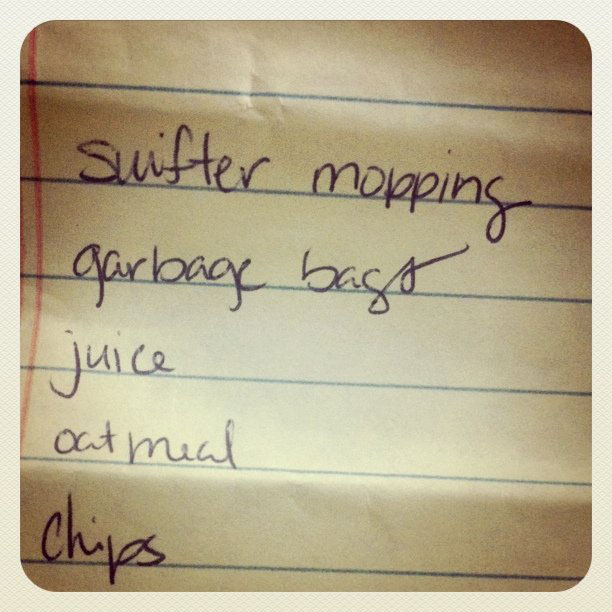 swifter mopping
garbage bags
juice
oatmeal
chips